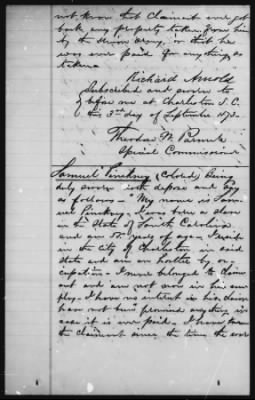 not know that claimant ever got
back any property taken from him
by the Union Army, or that he
was ever paid for anything so
taken
Richard Arnold
Subscribed and sworn to
before me at Charleston S.C.
this 3rd day of September 1873.
Special Commissioner
Samuel Pinkney (Colored) being
duly sworn doth depose and say
as follows - My name is Sam-
uel Pinkney, I was born a slave
in the State of South Carolina
and am 55 years of age. I reside
in the City of Charleston in said
State and am an hostler by oc-
cupation - I never belonged to Claim-
ant and am not now in his em-
ploy. I have no interest in his claim
have not been promised anything in
case it is ever paid. I have known
the claimant since the time the war